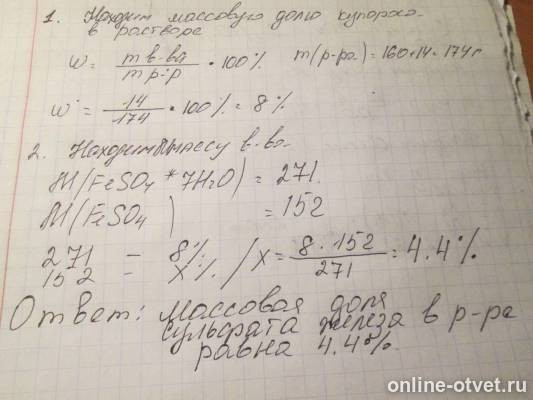 1. Находим массовую долю купороса
в растворе
w = m в-ва / m р-р • 100% m(р-ра) = 160+14 = 174 г
w = 14 / 174 • 100% = 8%
2. Находим массу в-ва
M(FeSO4 * 7H2O) = 271
M(FeSO4) = 152
271 — 8%
152 — x% / x = 8 · 152 / 271 = 4.4%
Ответ: массовая доля
сульфата железа в р-ре
равна 4.4%.
online-otvet.ru